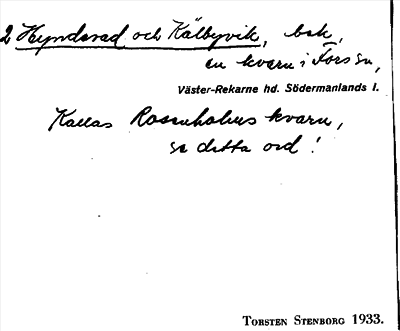 2 Hyndevad och Kälbyvik, bek,
en kvarn i Fors sn,
Väster-Rekarne hd. Södermanlands l.
Kallas Rosenholms kvarn,
se detta ord!
TORSTEN STENBORG 1933.